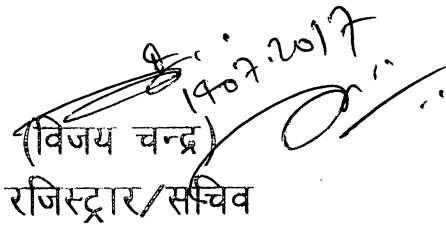 14.07.2017
(विजय चन्द्र)
रजिस्ट्रार/सचिव